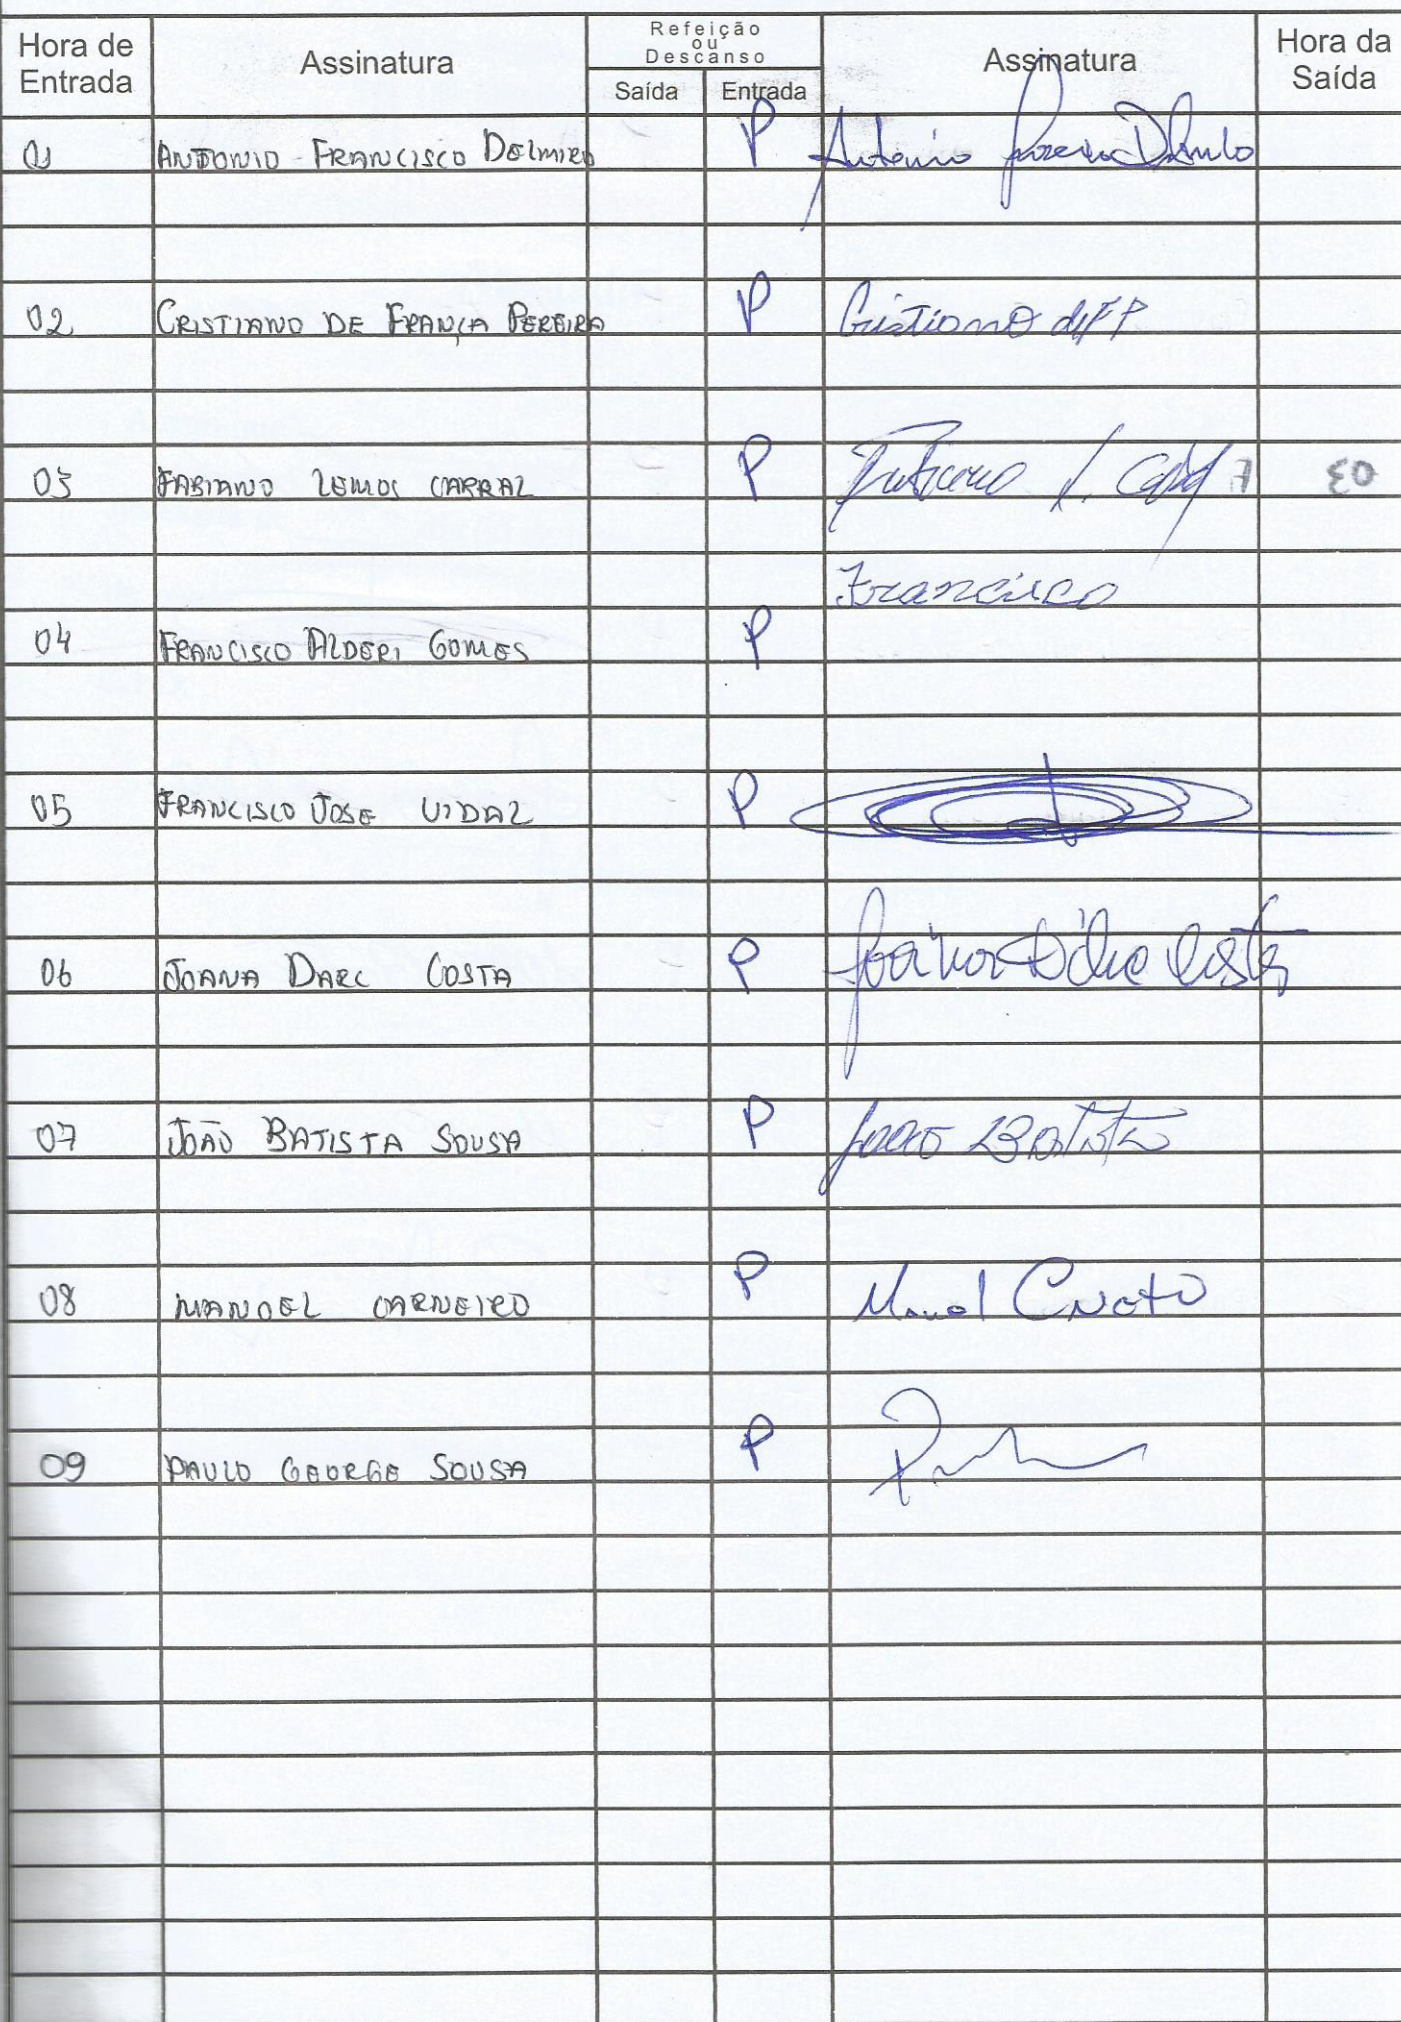 Hora de Entrada Assinatura Refeição ou Descanso Saída Entrada Assinatura Hora da Saída
01 ANTONIO FRANCISCO DELMIRO P Antonio
02 CRISTIANO DE FRANÇA PEREIRA P Cristiano de F P
03 FABIANO LEMOS CARRAL P
Francisco
04 FRANCISCO ALDERI GOMES P
05 FRANCISCO JOSE VIDAL P
06 JOANA DARC COSTA P Joana D'arc Costa
07 JOÃO BATISTA SOUSA P João Batista
08 MANOEL CARNEIRO P
09 PAULO GEORGE SOUSA P